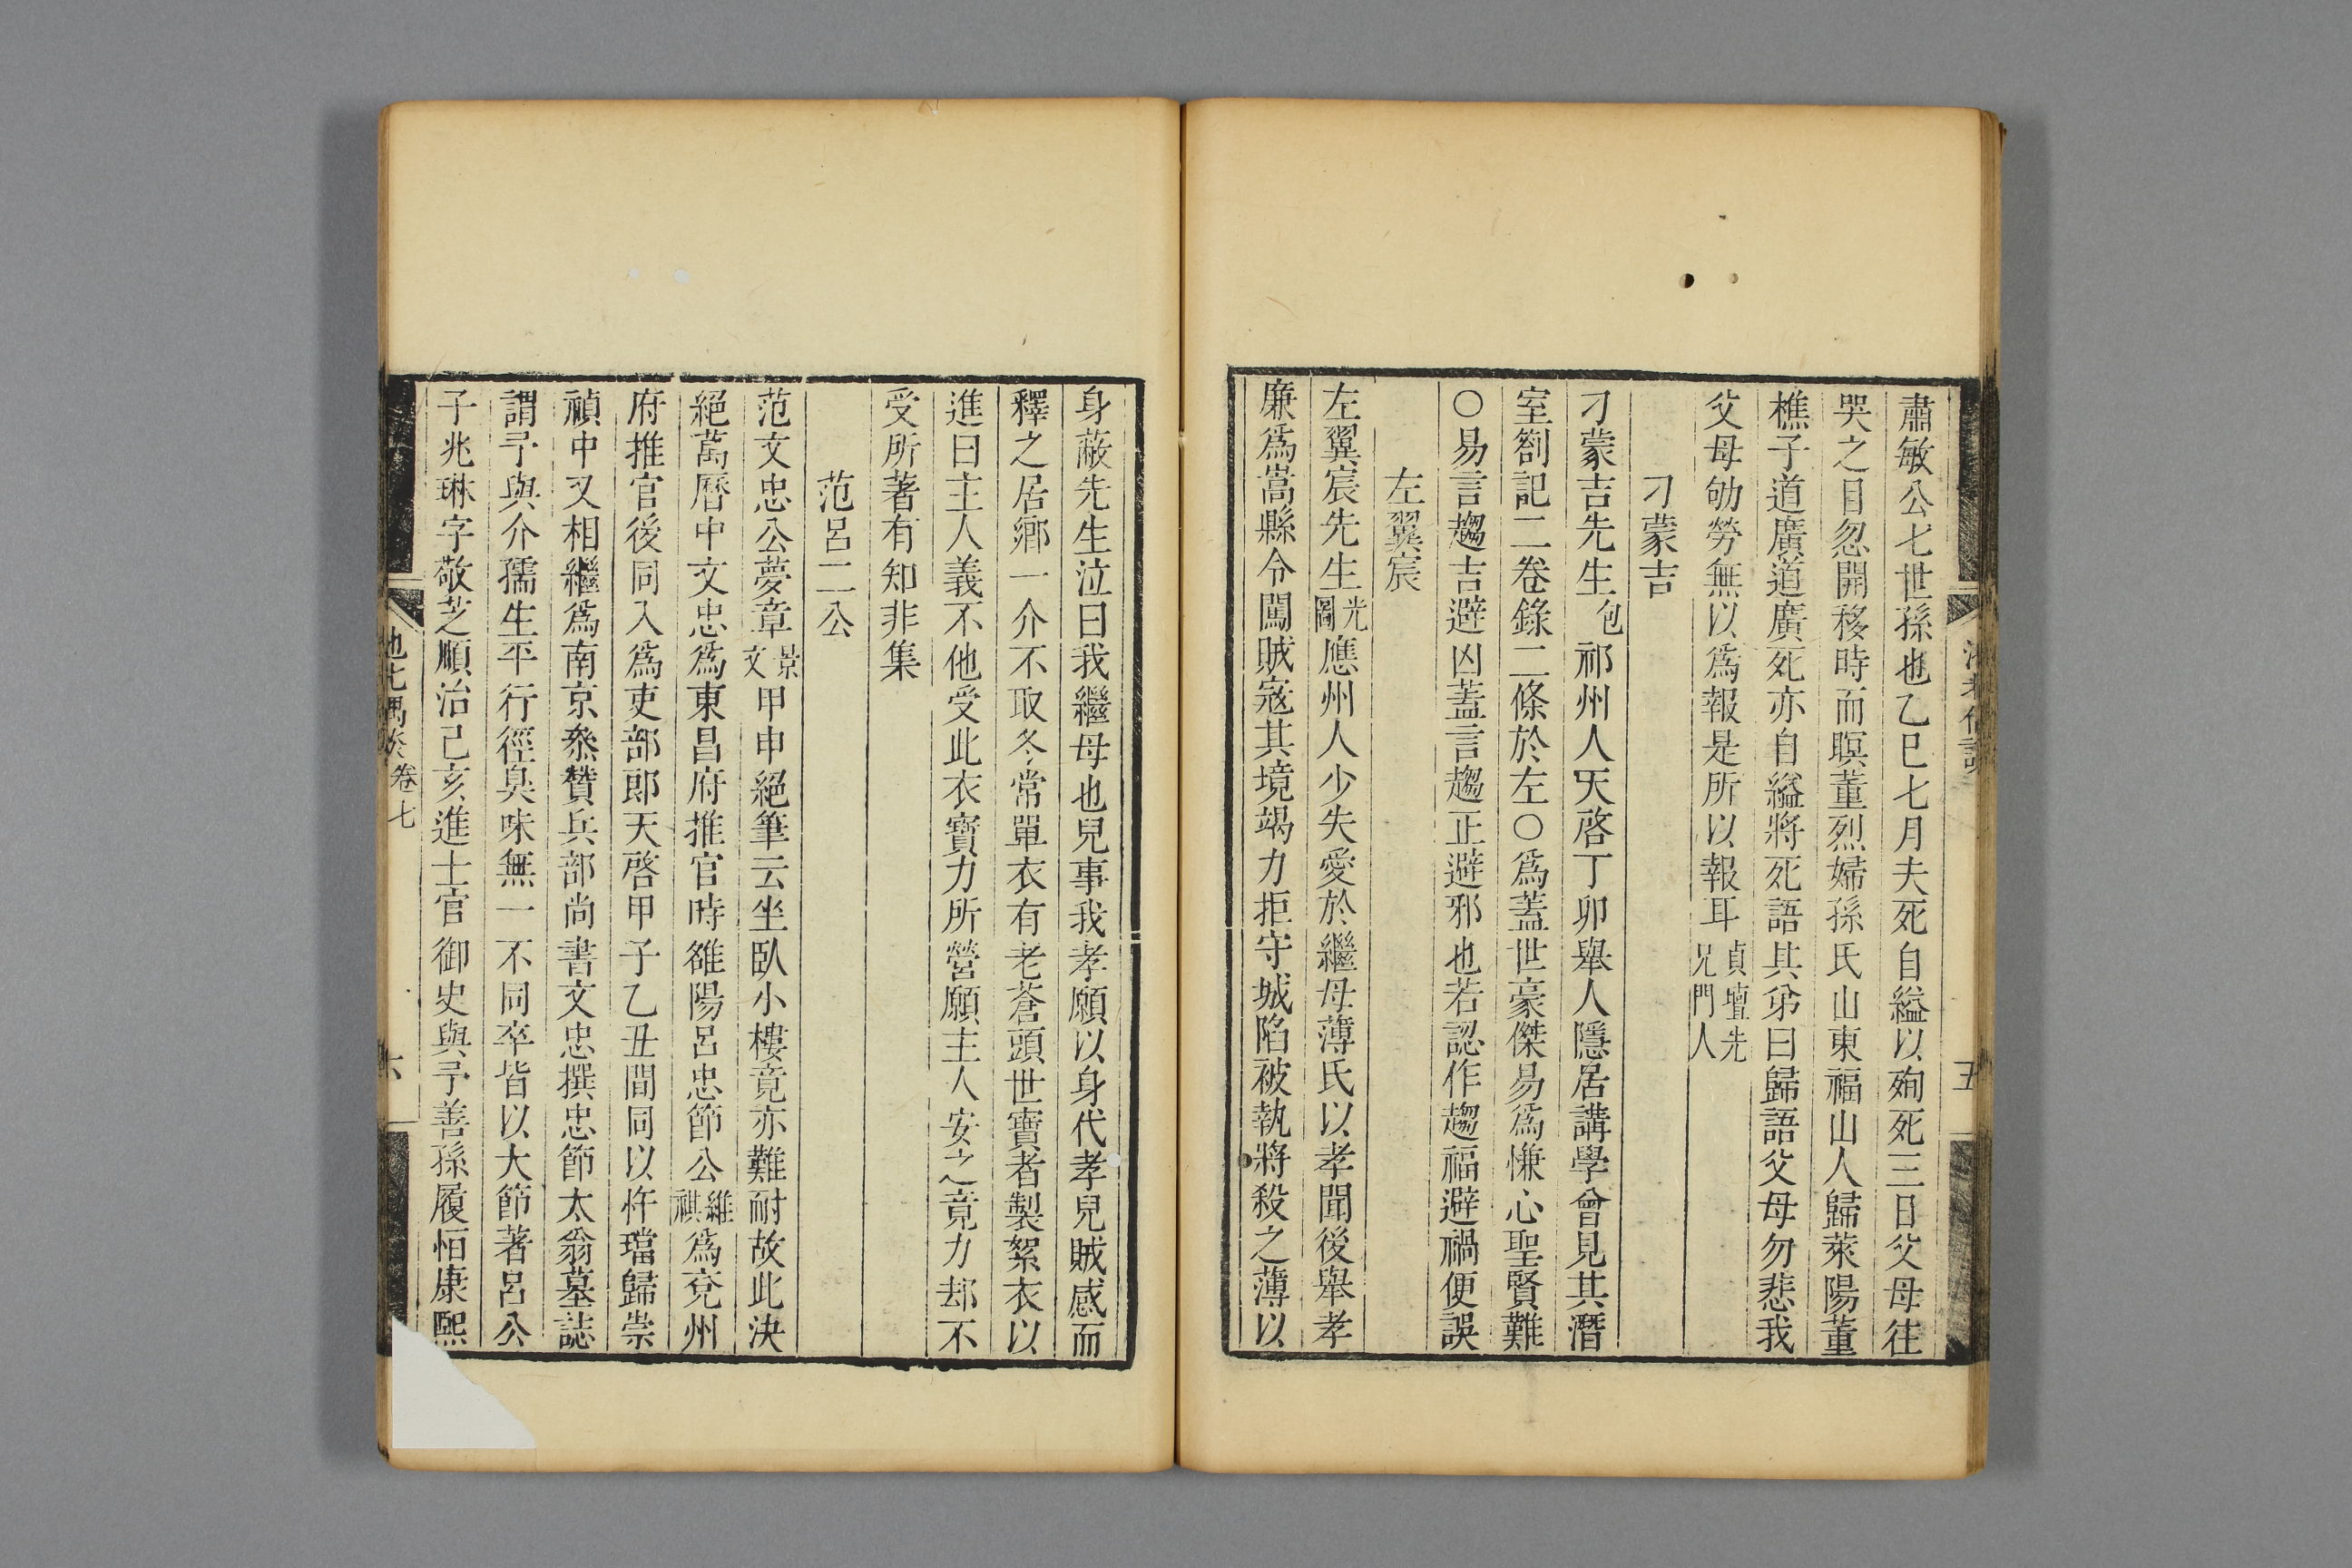 肅敏公七世孫也乙巳七月夫死自縊以殉死三日父母往
哭之目忽開移時而瞑董烈婦孫氏山東福山人歸萊陽董
樵子道廣道廣死亦自縊將死語其弟曰歸語父母勿悲我
父母劬勞無以爲報是所以報耳貞壇先兄門人
刁蒙吉
刁蒙吉先生包祁州人天啓丁卯舉人隱居講學曾見其潛
室劄記二卷錄二條於左○爲蓋世豪傑易爲慊心聖賢難
○易言趨吉避凶蓋言趨正避邪也若認作趨福避禍便誤
左翼宸
左翼宸先生光圖應州人少失愛於繼母薄氏以孝聞後舉孝
廉爲嵩縣令闖賊寇其境竭力拒守城陷被執將殺之薄以
五
身蔽先生泣曰我繼母也兒事我孝願以身代孝兒賊感而
釋之居鄉一介不取冬常單衣有老蒼頭世寶者製絮衣以
進曰主人義不他受此衣寶力所營願主人安之竟力却不
受所著有知非集
范呂二公
范文忠公夢章景文甲申絕筆云坐臥小樓竟亦難耐故此決
絕萬曆中文忠爲東昌府推官時雒陽呂忠節公維祺爲兗州
府推官後同入爲吏部郎天啓甲子乙丑間同以忤璫歸崇
禎中又相繼爲南京叅贊兵部尚書文忠撰忠節太翁墓誌
謂予與介孺生平行徑臭味無一不同卒皆以大節著呂公
子兆琳字敬芝順治己亥進士官御史與予善孫履恒康熙
池北偶談 卷七
六